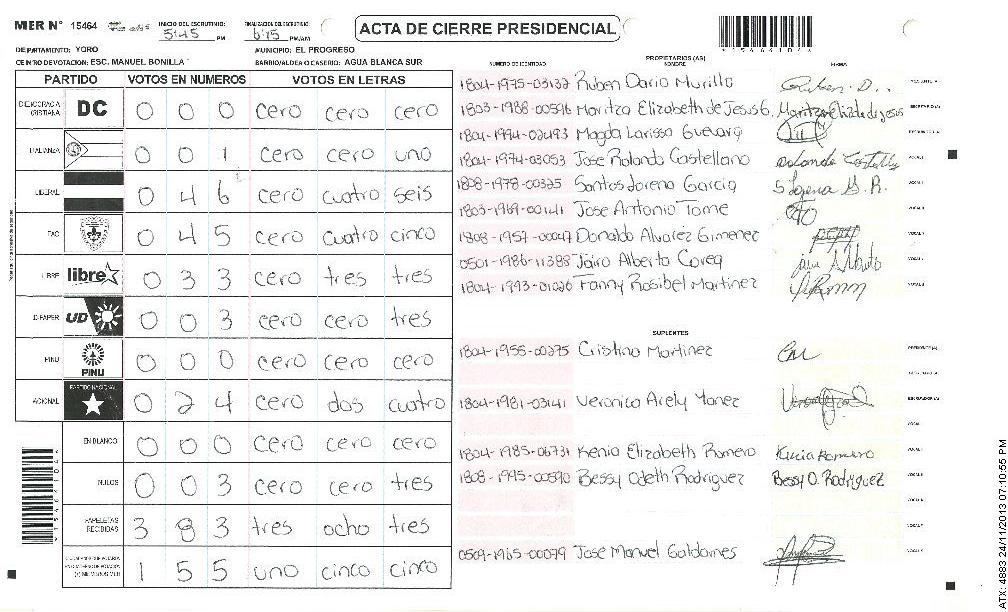 MER N° 15464 INICIO DEL ESCRUTINIO: 5:45 PM FINALIZACION DEL ESCRUTINIO: 6:15 PM/AM
ACTA DE CIERRE PRESIDENCIAL
DEPARTAMENTO: YORO MUNICIPIO: EL PROGRESO
CENTRO DE VOTACION: ESC. MANUEL BONILLA BARRIO/ALDEA O CASERIO: AGUA BLANCA SUR
PARTIDO VOTOS EN NUMEROS VOTOS EN LETRAS
DEMOCRACIA CRISTIANA DC 0 0 0 cero cero cero
ALIANZA 0 0 1 cero cero uno
LIBERAL 0 4 6 cero cuatro seis
PAC 0 4 5 cero cuatro cinco
LIBRE libre 0 3 3 cero tres tres
UD-FAPER UD 0 0 3 cero cero tres
PINU PINU 0 0 0 cero cero cero
NACIONAL PARTIDO NACIONAL 0 2 4 cero dos cuatro
EN BLANCO 0 0 0 cero cero cero
NULOS 0 0 3 cero cero tres
PAPELETAS RECIBIDAS 3 8 3 tres ocho tres
1 5 5 uno cinco cinco
NUMERO DE IDENTIDAD PROPIETARIOS (AS) NOMBRE FIRMA
1804-1975-03132 Ruben Dario Murillo
1803-1988-00596 Maritza Elizabeth de Jesus G. Maritza Elizabe de Jesus
1804-1994-02493 Magda Larissa Guevara
1804-1974-03053 Jose Rolando Castellano
1808-1978-00325 Santos Lorena Garcia
1803-1969-00141 Jose Antonio Tome
1808-1957-00047 Donaldo Alvarez Gimenez
0501-1986-11388 Jairo Alberto Corea
1804-1993-01026 Fanny Rosibel Martinez
SUPLENTES
1804-1955-00275 Cristino Martinez
1804-1981-03141 Veronica Arely Yanez
1804-1985-06731 Kenia Elizabeth Romero Kenia Romero
1808-1995-00590 Bessy Odeth Rodriguez Bessy O. Rodriguez
0509-1965-00079 Jose Manuel Galdames
ATX: 4883 24/11/2013 07:10:55 PM